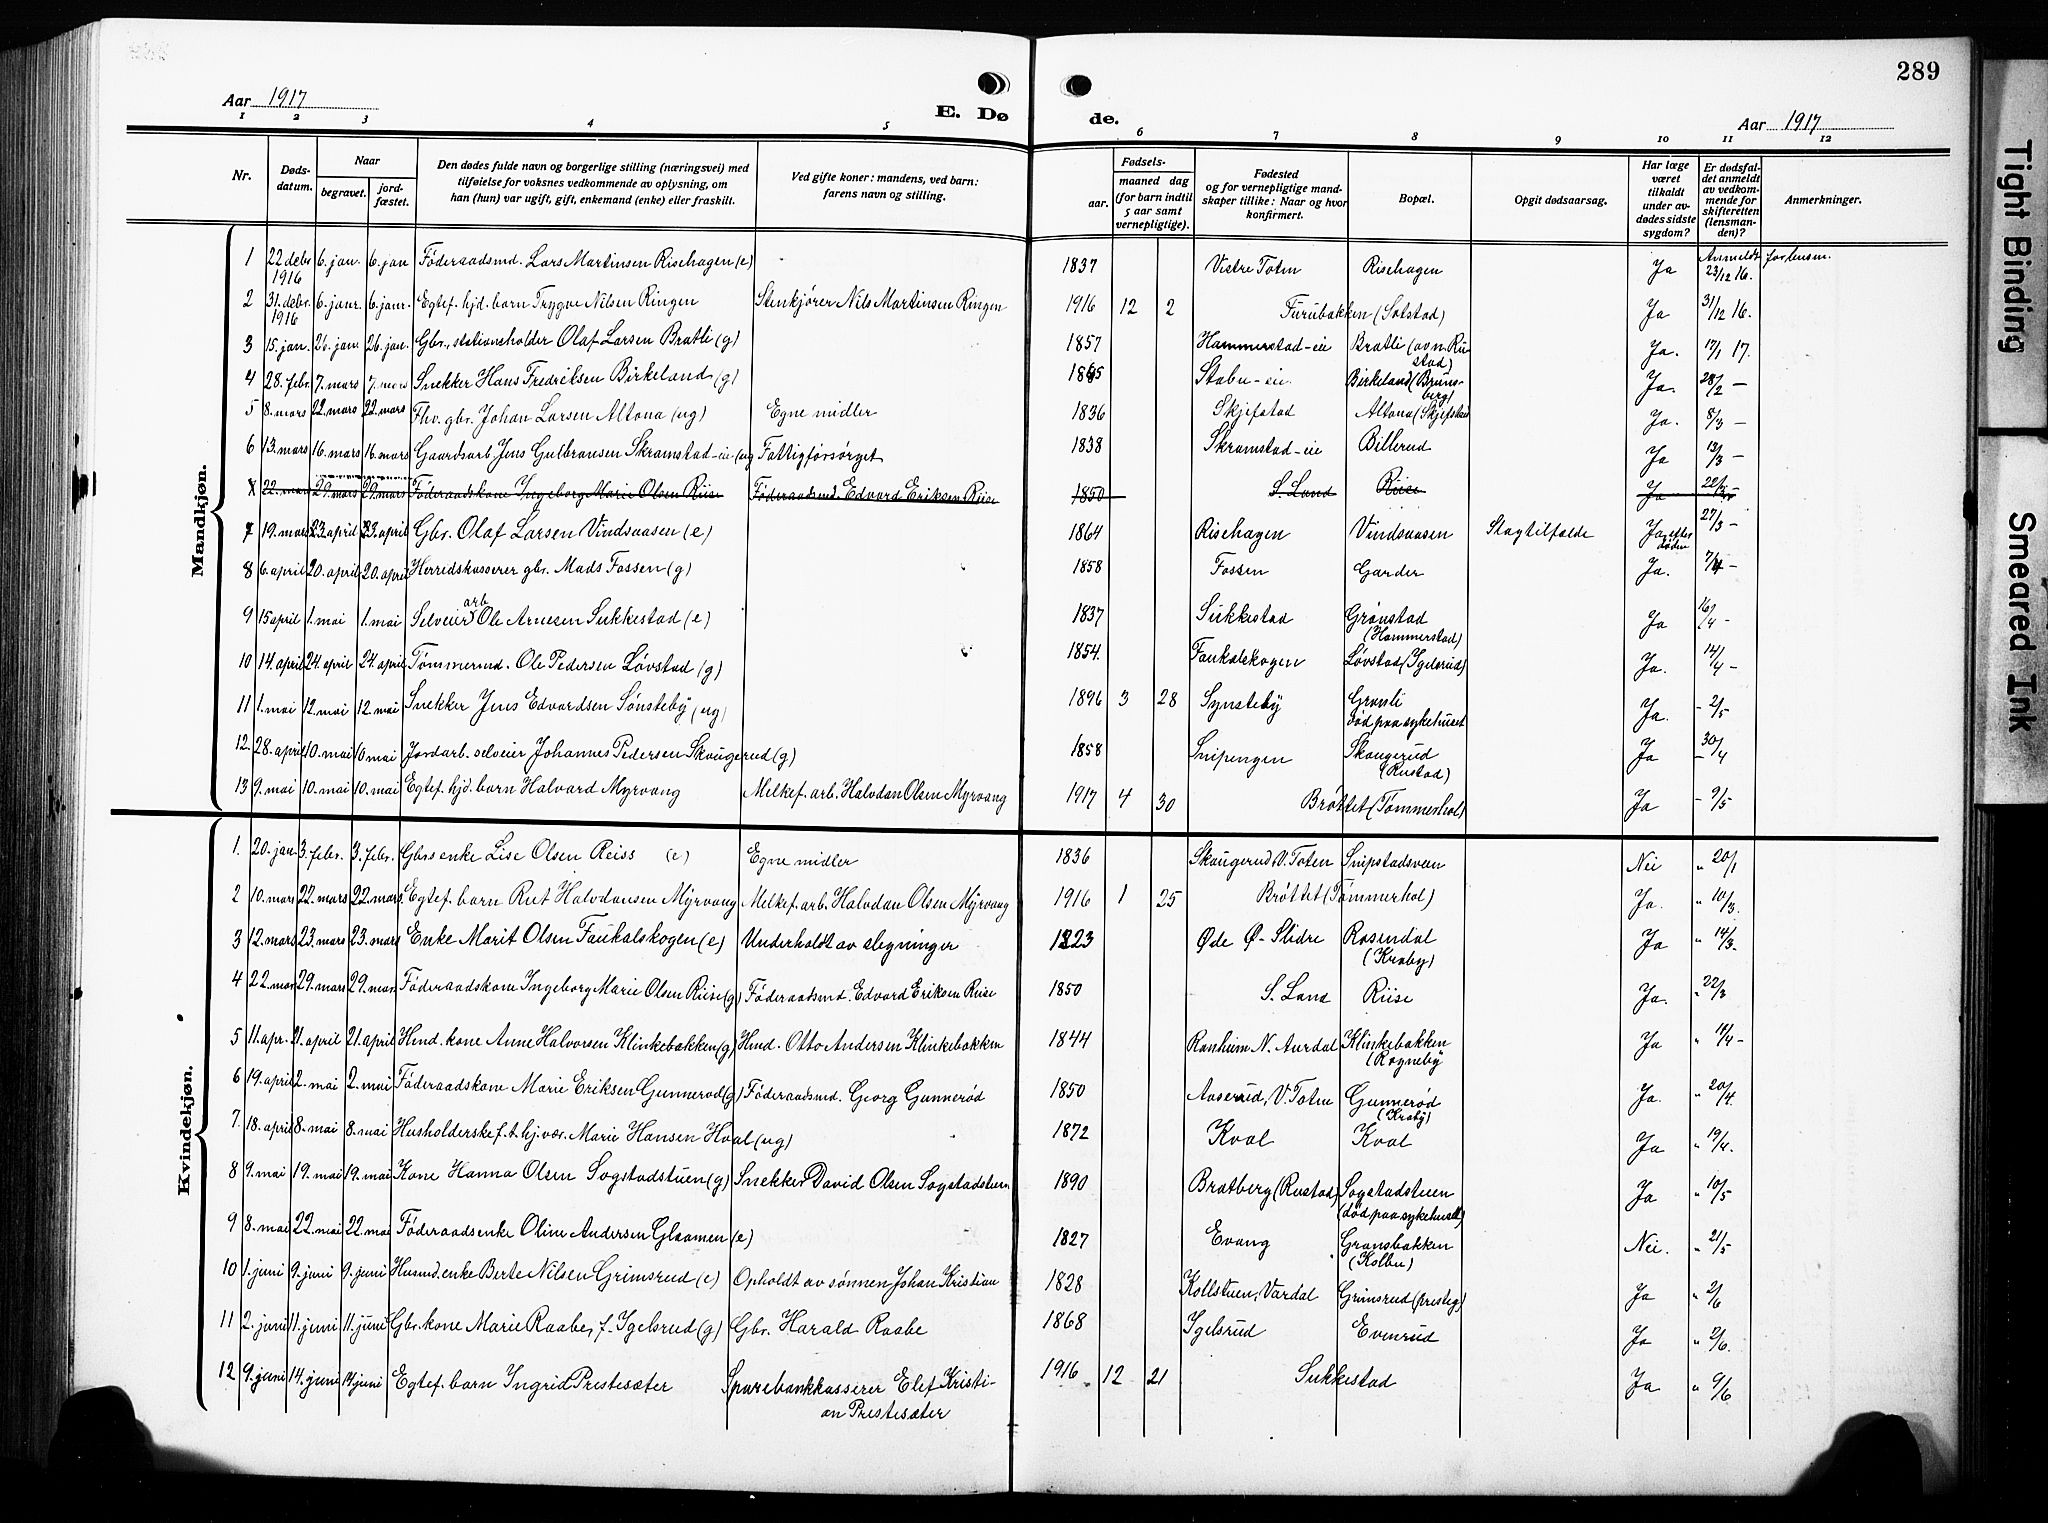 289
Aar 1917
E. Dø de.
Aar 1917
1 2 3 4 5 6 7 8 9 10 11 12
Nr.
Døds-
datum.
Naar
begravet.
jord-
fæstet.
Den dødes fulde navn og borgerlige stilling (næringsvei) med
tilføielse for voksnes vedkommende av oplysning, om
han (hun) var ugift, gift, enkemand (enke) eller fraskilt.
Ved gifte koner: mandens, ved barn:
farens navn og stilling.
Fødsels-
aar. maaned dag
(for barn indtil
5 aar samt
vernepligtige).
Fødested
og for vernepligtige mand-
skaper tillike: Naar og hvor
konfirmert.
Bopæl.
Opgit dødsaarsag.
Har læge
været
tilkaldt
under av-
dødes sidste
sygdom?
Er dødsfal-
det anmeldt
av vedkom-
mende for
skifteretten
(lensman-
den)?
Anmerkninger.
Mandkjøn.
1 22 debr 1916 6. jan. 6. jan Føderaadsmd. Lars Martinsen Risehagen (e) 1837 Vestre Toten Risehagen Ja Anmeldt for lensm. 23/12 16.
2 31. debr. 1916 6. janr. 6. janr. Egtef. hjd. barn Trygve Nilsen Ringen Stenkjører Nils Martinsen Ringen 1916 12 2 Furubakken (Sotstad) Ja 31/12 16.
3 15. jan. 26. jan. 26. jan. Gbr., stationsholder Olaf Larsen Bratli (g) 1857 Hammerstad-eie Bratli (av n. Rustad) Ja. 17/1 17.
4 28. febr. 7. mars 7. mars Snekker Hans Fredriksen Birkeland (g) 1865 Stabu-eie. Birkeland (Brunsberg) Ja. 28/2 -
5 8. mars 22. mars 22. mars Fhv. gbr. Johan Larsen Altona (ug) Egne midler 1836 Skjefstad Altona (Skjefstad Ja. 8/3 -
6 13. mars 16. mars 16. mars Gaardsarb. Jens Gulbransen Skramstad-eie (ug Fattigforsørget 1838 Skramstad-eie Billerud Ja 13/3 -
8 22. mars 29. mars 29. mars Føderaadskone Ingeborg Marie Olsen Riise Føderaadsmd. Edvard Eriksen Riise 1850 S. Land Riise Ja 22/3 -
7 19. mars 23. april 23. april Gbr. Olaf Larsen Vindsaasen (e) 1864 Risehagen Vindsaasen Slagtilfælde Ja, efter døden 27/3 -
8 6. april 20. april 20. april Herredskasserer gbr. Mads Fossen (g) 1858 Fossen Garder Ja. 7/4 -
9 15 april 1. mai 1. mai Selveier arb Ole Arnesen Sukkestad (e) 1837 Sukkestad Grønstad (Hammerstad) Ja 16/4 -
10 14. april 24. april 24. april Tømmermd. Ole Pedersen Løvstad (g) 1854. Faukalskogen Løvstad (Igelsrud) Ja. 14/4 -
11 1. mai 12. mai 12 mai Snekker Jens Edvardsen Sønsteby (ug) 1896 3 28 Synsteby Granli død paa sykehuset Ja. - 2/5
12. 28. april 10. mai 10 mai Jordarb. selveier Johannes Pedersen Skaugerud (g) 1858 Snipengen Skaugerud (Rustad) Ja - 30/4
13 9. mai 10. mai 10. mai Egtef. hjd. barn Halvard Myrvang Melkef. arb. Halvdan Olsen Myrvang 1917 4 30 Brøttet (Tømmerhol) Ja - 9/5
Kvindekjøn.
1. 20. jan 3. febr. 3. febr. Gbrs enke Lise Olsen Reiss (e) Egne midler 1836 Skaugerud V. Toten Snipstadsveen Nei " 20/1
2 10. mars 22. mars 22. mars. Egtef. barn Rut Halvdansen Myrvang Melkef. arb. Halvdan Olsen Myrvang 1916 1 25 Brøttet (Tømmerhol) Ja. " 10/3.
3 12. mars 23. mars 23. mars Enke Marit Olsen Faukalskogen (e) Underholdt av slegninger 1823 Øde Ø-Slidre Rosendal (Kraby) Ja " 14/3-
4 22. mar 29. mars 29. mar. Føderaadskone Ingeborg Marie Olsen Riise (g) Føderaadsmd. Edvard Eriksen Riise 1850 S. Land Riise Ja. " 22/3
5 11. apr. 21. april 21. april Hmd. kone Anne Halvorsen Klinkebakken (g) Hmd. Otto Andersen Klinkebakken 1844 Ranheim N. Aurdal Klinkebakken (Rogneby Ja " 11/4 -
6 19. april 2. mai 2. mai Føderaadskone Marie Eriksen Gunnerød (g) Føderaadsmd. Georg Gunnerød 1850 Aaserud, V. Toten Gunnerød (Kraby) Ja. " 20/4.
7. 18. april 8. mai 8. mai Husholderske f. t. hj. vær. Marie Hansen Hval (ug) 1872 Kval Kval Ja " 19/4.
8 9. mai 19. mai 19. mai Kone Hanna Olsen Sogstadstuen (g) Snekker David Olsen Sogstadstuen 1890 Bratberg (Rustad) Sogstadstuen (død paa sykehuset) Ja " 10/5
9 8. mai 22. mai 22 mai Føderaadsenke Oline Andersen Glaamen (e) 1827 Evang Gransbakken (Kolbu) Nei. " 21/5
10 1. juni 9. juni 9. juni Husmd. enke Berte Nilsen Grimsrud (e) Opholdt av sønnen Johan Kristian 1828 Kollstuen, Vardal Grimsrud (presteg) Ja " 2/6
11 2. juni 11. juni 11. juni Gbr. kone Marie Raabe, f. Igelsrud (g) Gbr. Harald Raabe 1868 Igelsrud Evenrud Ja " 2/6.
12 9. juni 14. juni 14 juni Egtef. barn Ingrid Prestesæter Sparebankkasserer Elef Kristi-
an Prestesæter 1916 12 21 Sukkestad Ja " 9/6
Tight Binding
Smeared Ink